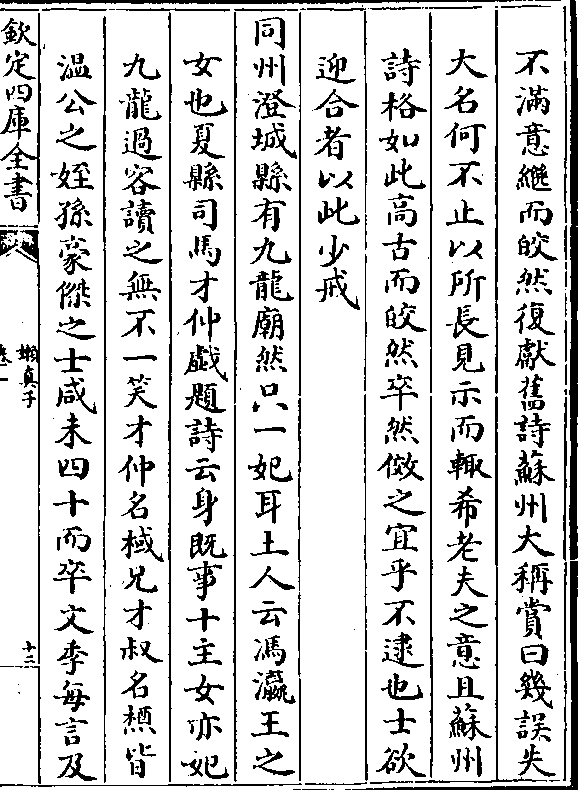 不滿意繼而皎然復獻舊詩蘇州大稱賞曰幾誤失
大名何不止以所長見示而輙希老夫之意且蘇州
詩格如此高古而皎然卒然倣之宜乎不逮也士欲
迎合者以此少戒
同州澄城縣有九龍廟然只一妃耳土人云馮瀛王之
女也夏縣司馬才仲戲題詩云身既事十主女亦妃
九龍過客讀之無不一笑才仲名棫兄才叔名槱皆
温公之姪孫豪傑之士咸未四十而卒文季每言及
欽定四庫全書
嬾真子
卷一
十三